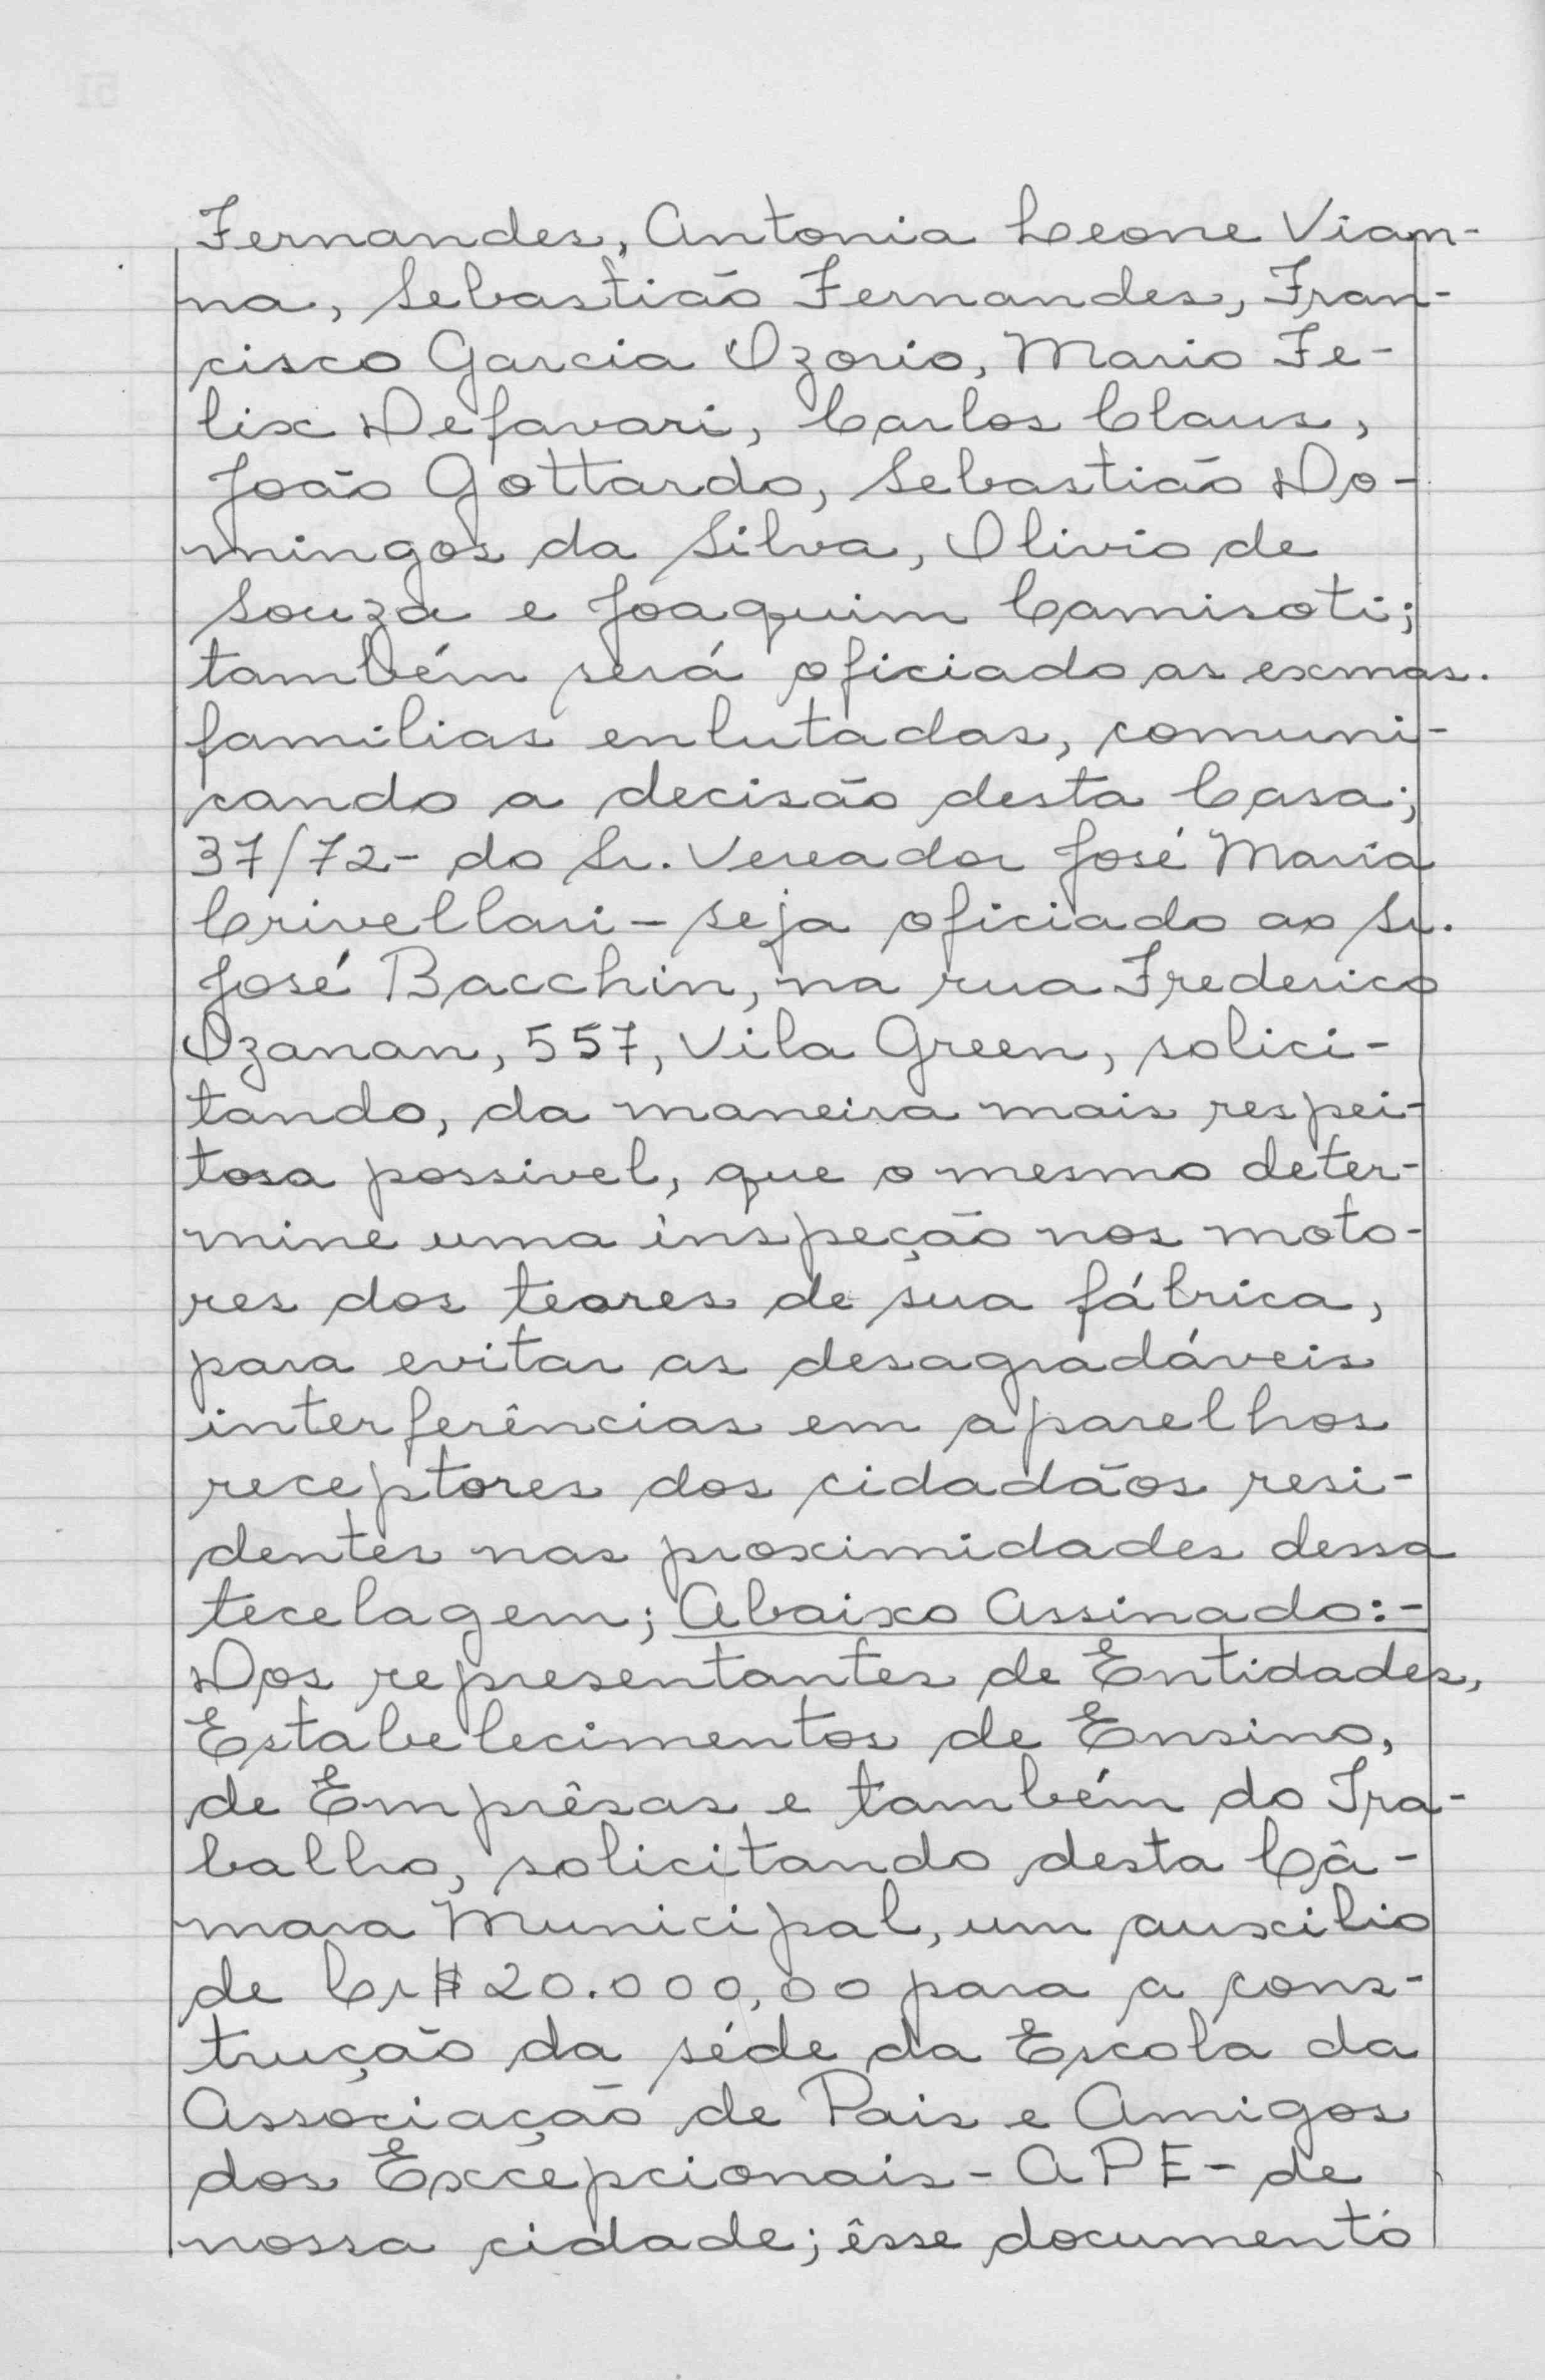 Fernandes, Antonia Leone Vian-
na, Sebastião Fernandes, Fran-
cisco Garcia Ozorio, Mario Fe-
lix Defavari, Carlos Claus,
João Gottardo, Sebastião Do-
mingos da Silva, Olivio de
Souza e Joaquim Camisoti;
também será oficiado as exmas.
familias enlutadas, comuni-
cando a decisão desta Casa;
37/72- do Sr. Vereador José Maria
Crivellari - seja oficiado ao Sr.
José Bacchin, na rua Frederico
Ozanan, 557, Vila Green, solici-
tando, da maneira mais respei-
tosa possivel, que o mesmo deter-
mine uma inspeção nos moto-
res dos teares de sua fábrica,
para evitar as desagradáveis
interferências em aparelhos
receptores dos cidadãos resi-
dentes nas proximidades dessa
tecelagem; Abaixo Assinado:-
Dos representantes de Entidades,
Estabelecimentos de Ensino,
de Emprêsas e também do Tra-
balho, solicitando desta Câ-
mara Municipal, um auxilio
de Cr$ 20.000,00 para a cons-
trução da séde da Escola da
Associação de Pais e Amigos
dos Excepcionais - APE - de
nossa cidade; êsse documento